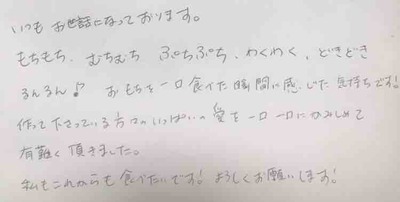 いつもお世話になっております。
もちもち、むちむち、ぷちぷち、わくわく、どきどき
るんるん♪ おもちを一口食べた瞬間に感じた気持ちです!
作って下さっている方々のいっぱいの愛を一口一口にかみしめて
有難く頂きました。
私もこれからも食べたいです!よろしくお願いします!